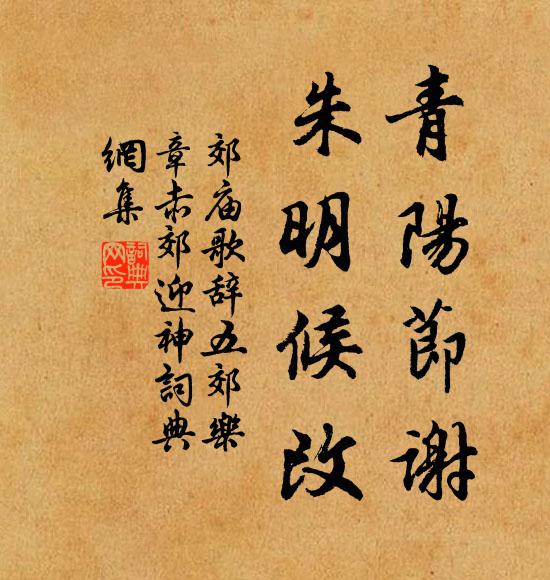 青陽節謝
朱明候改
郊庙歌辞五郊樂
章赤郊迎神詞典
網集
詞典网印